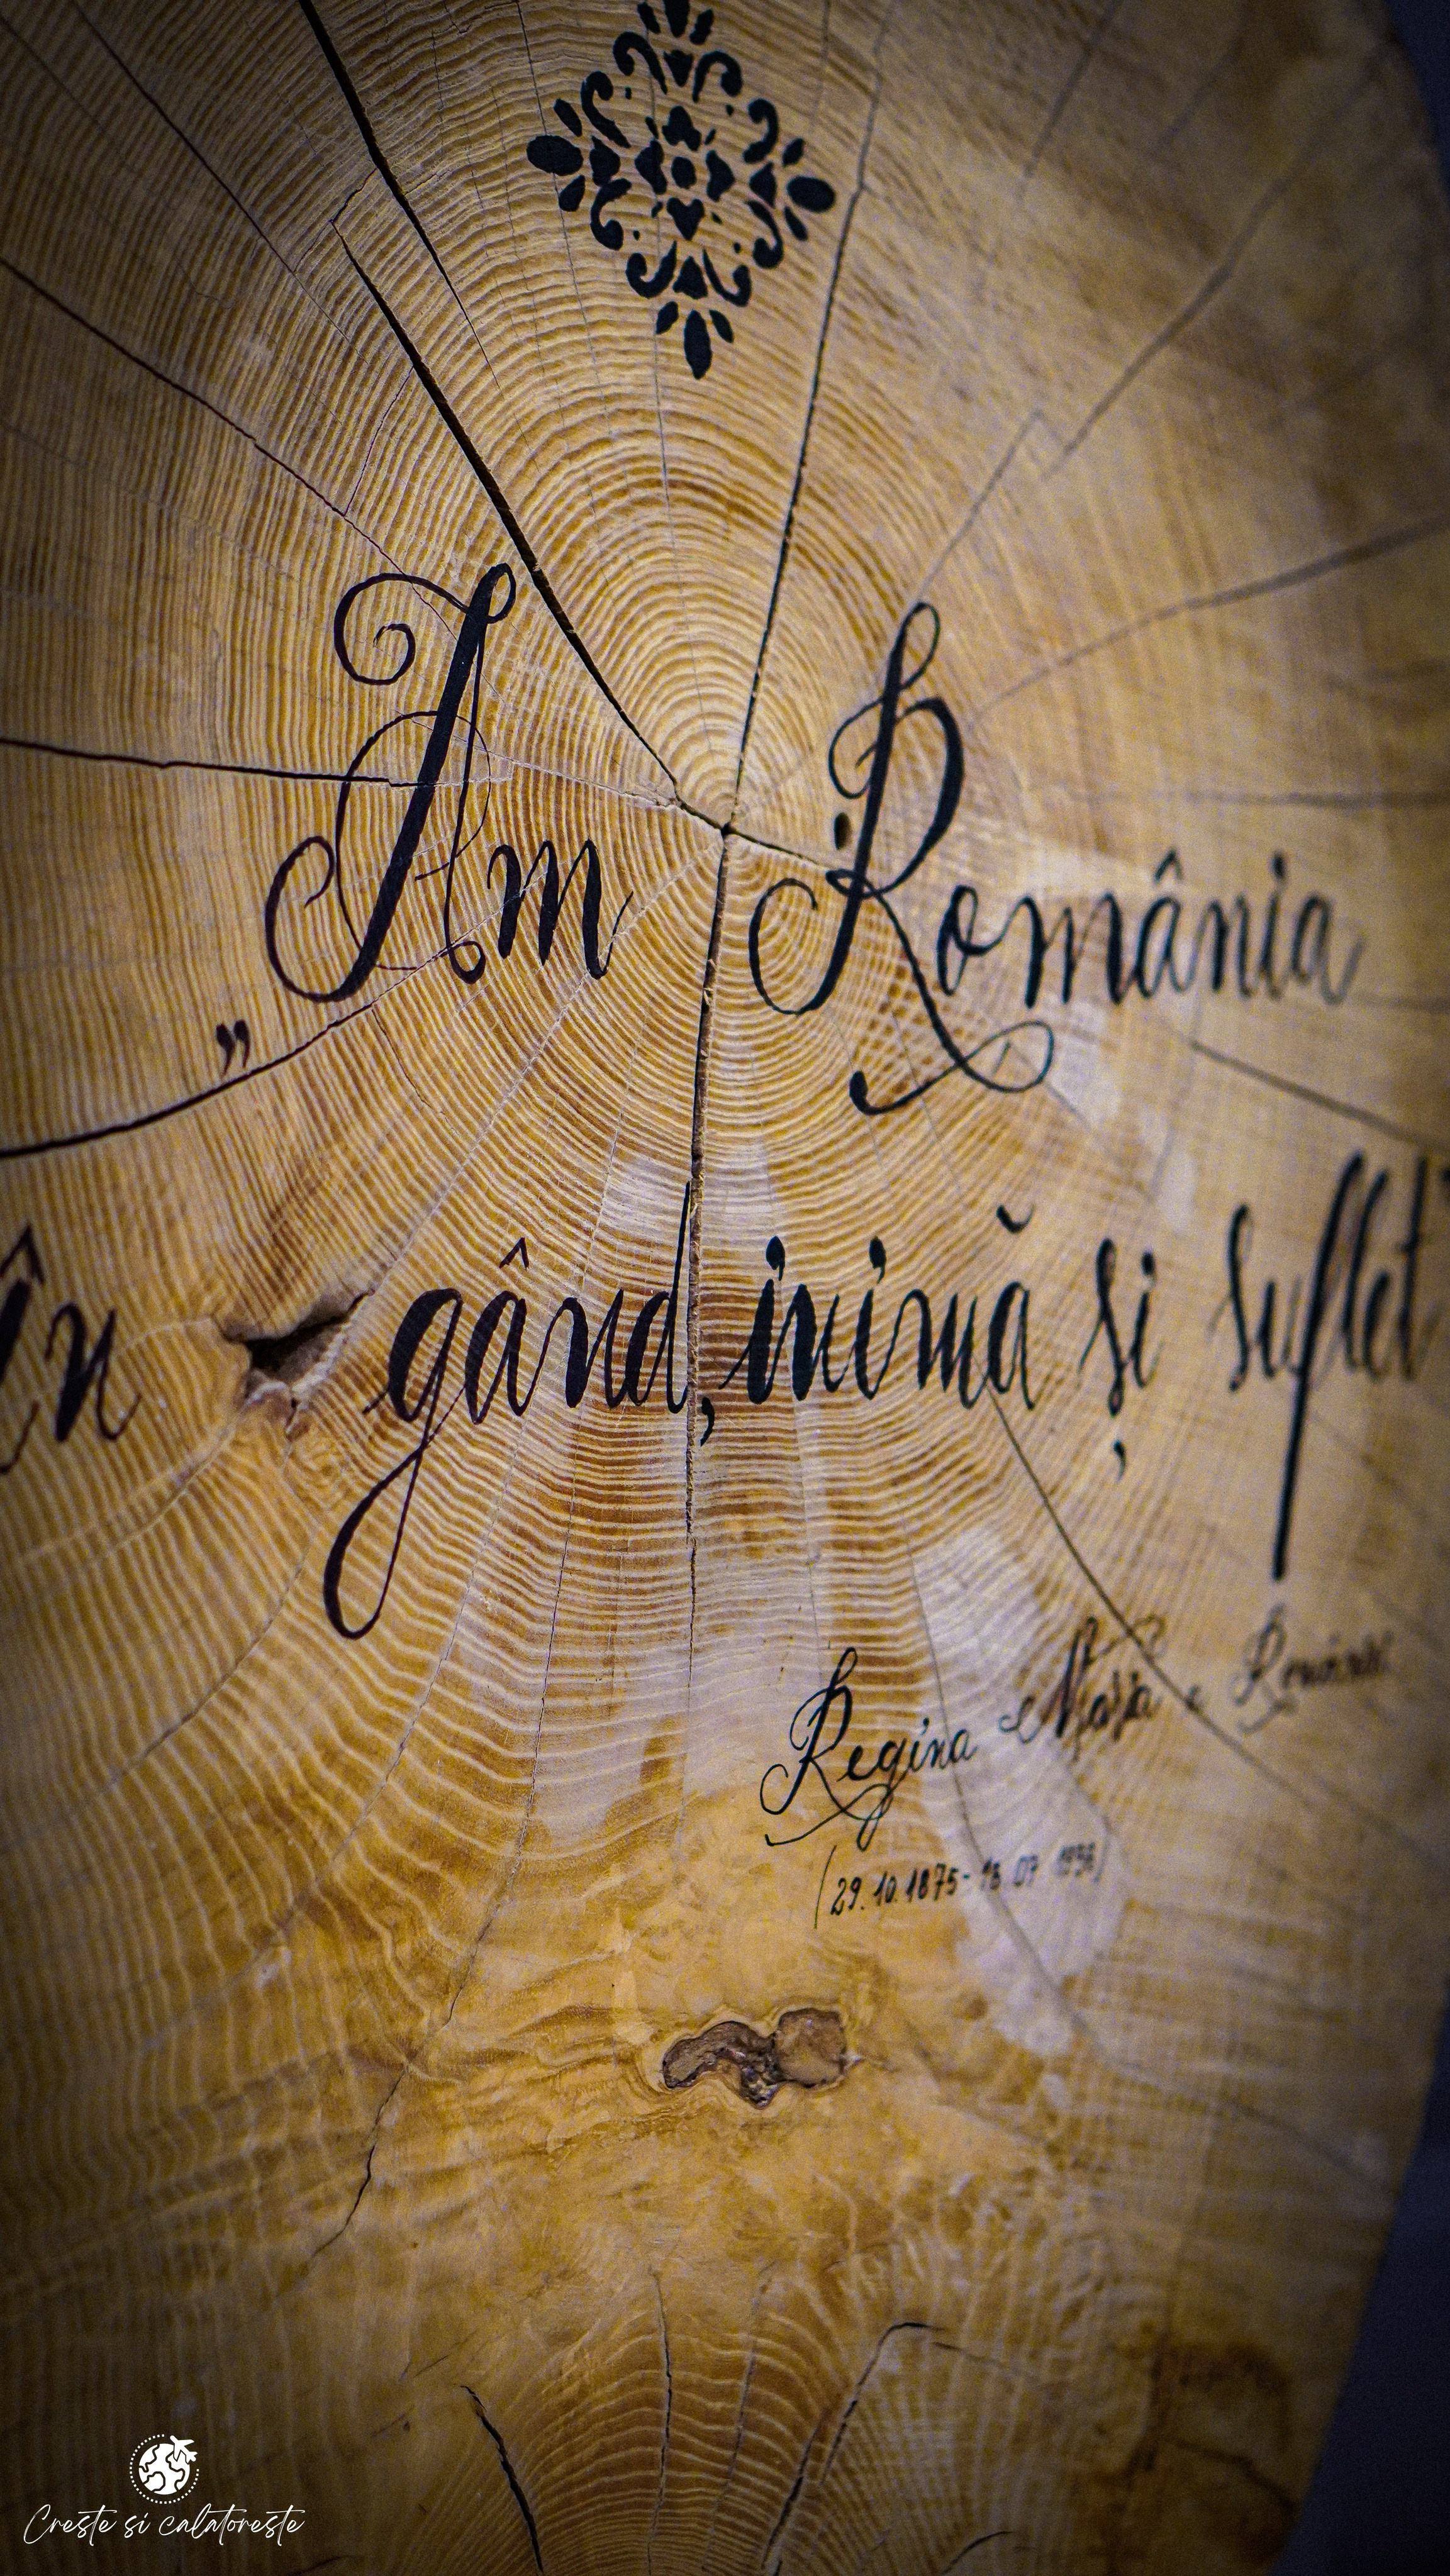 „Am România
în gând, inimă și suflet”
Regina Maria a României
(29.10.1875-18.07.1938)
Creste si calatoreste